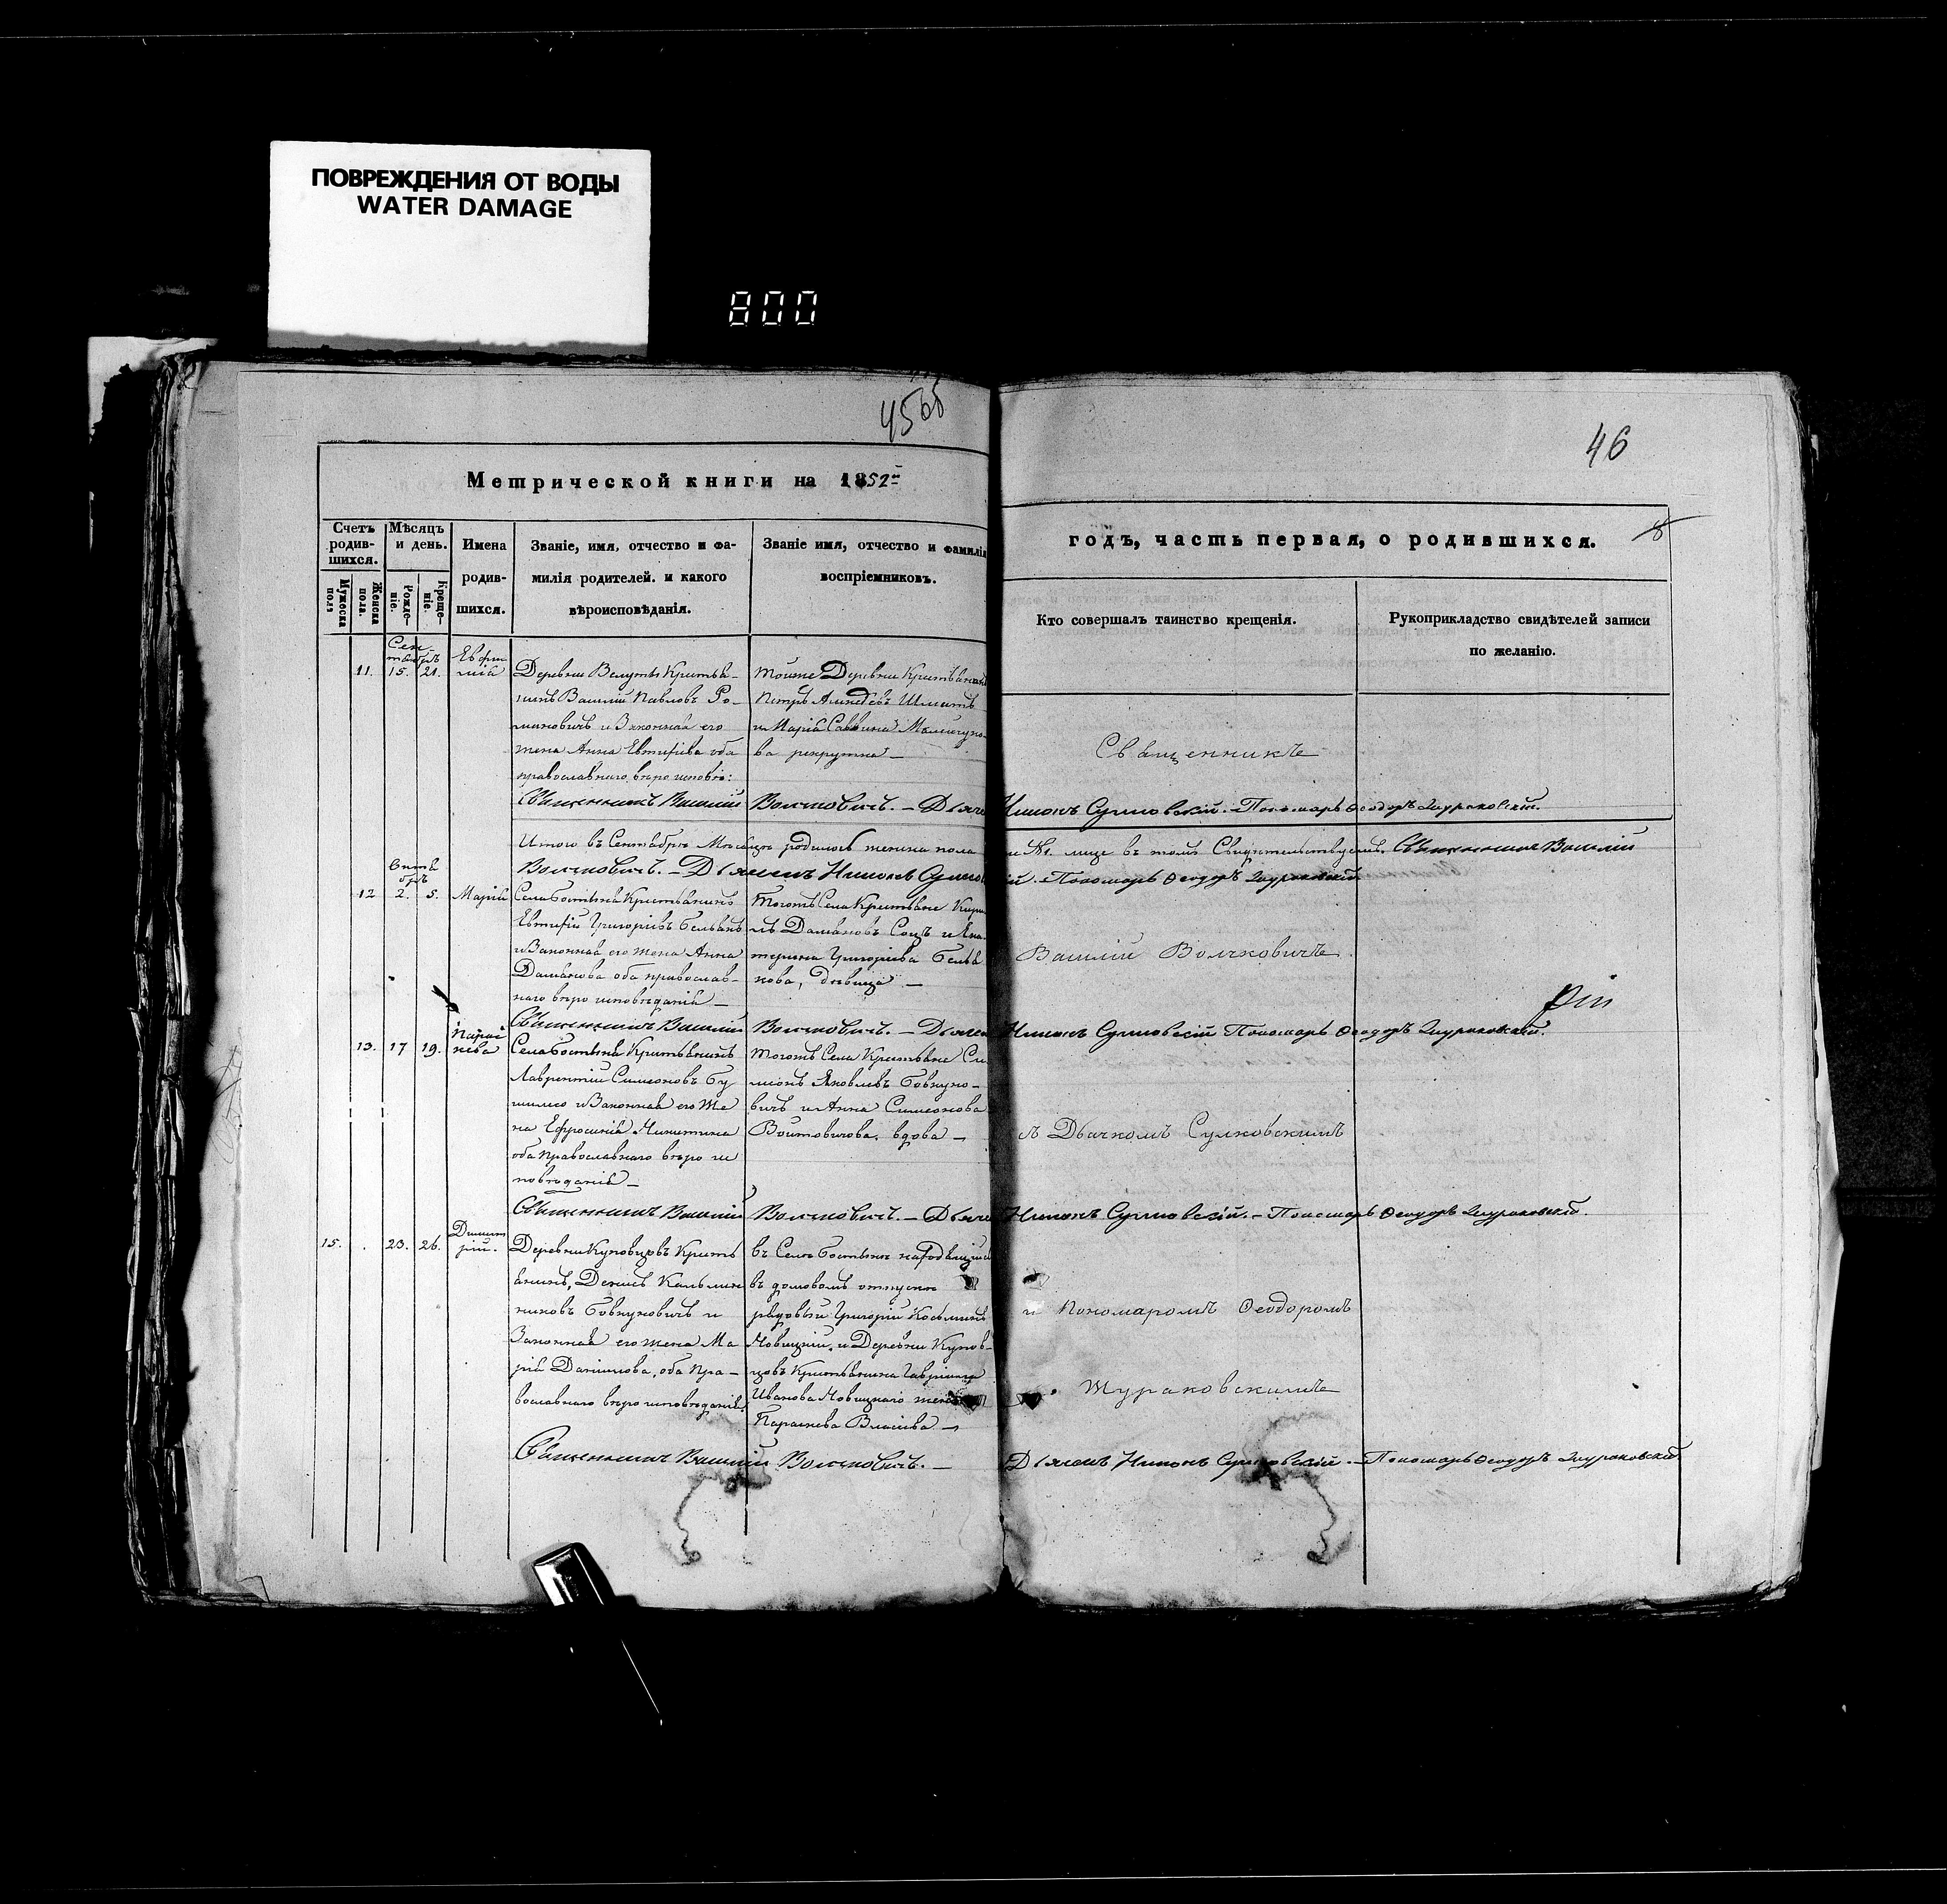 ПОВРЕЖДЕНИЯ ОТ ВОДЫ
WATER DAMAGE
800
45об
46
8
Метрической книги на 1852й
годъ, часть первая, о родившихся.
Счетъ родив-шихся.
Мужеска пола
Женска пола.
Мѣсяцъ и день.
Рожде-ніе.
Креще-ніе.
Имена родив-шихся.
Званіе, имя, отчество и фа-
милія родителей. и какого
вѣроисповѣданія.
Званіе имя, отчество и фамилія
воспріемниковъ.
Кто совершалъ таинство крещенія.
Рукоприкладство свидѣтелей записи
по желанію.
Сен-
тябрь
11. 15. 21.
Евфи
мія
Деревни Крестья-
нинъ Василій Павловъ Ро-
мановичъ и Законная его
жена Анна Евтифіева оба
православнаго вѣро исповѣ:
тойже Деревни Крестьянинъ
Петръ
и Марія Саввина
ва рекрутка —
Священникъ
Священникъ Василій Волчковичъ. — Дьячекъ Никонъ Сулковскій. — Пономарь Ѳеодоръ Жураковскій.
Итого въ Сентябрѣ Мѣсяцѣ родилось женска пола и №1. лице въ томъ Свидетельствуемъ. Священникъ Василій
Волчковичъ. — Дьячекъ Никонъ Сулковскій. Пономарь Ѳеодоръ Жураковскій
Октя
брь
12 2. 5. Марія
Села Бостыня Крестьянинъ
Евтифій Григоріевъ Бельвинъ
и Законная его жена Анна
Даміанова оба православ-
наго вѣро исповѣданія —
Тогожъ Села Крестьяне
лъ Даміановъ Соцъ и Ека-
терина Григоріева
кова, дѣвица —
Василій Волчковичъ
Священникъ Василій Волчковичъ. — Дьячекъ Никонъ Сулковскій Пономарь Ѳеодоръ Жураковскій.
13. 17 19.
Парас
кева
Села Бостыня Крестьянинъ
Лаврентій Симеоновъ Бу
и Законная его Же
на Ефросинія Никитина
оба православнаго вѣро ис
повѣданія —
Тогожъ Села Крестьяне Си
меонъ Яковлевъ Бовкуно-
вичъ и Анна Симеонова
Войтовичова, вдова —
съ Дьячкомъ Сулковскимъ
Священникъ Василій Волчковичъ. — Дьячекъ Никонъ Сулковскій. — Пономарь Ѳеодоръ Жураковскій.
15. 23. 26.
Димит
рій.
Деревни Куповцовъ Кресть
янинъ, Денисъ
никовъ Бовкуновичъ и
Законная его жена Ма
рія Даніилова, оба пра —
вославнаго вѣро исповѣданія.
въ Селѣ Бостынѣ находящійся
въ домовомъ отпуске
рядовый Григорій Косьминъ
Новицкій, и Деревни Купов-
цовъ Крестьянина Гавріила
Иванова Новицкаго жена
Параскева Власіева —
и Пономаромъ Ѳеодоромъ
Жураковскимъ
Священникъ Василій Волчковичъ. — Дьячекъ Никонъ Сулковскій. — Пономарь Ѳеодоръ Жураковскій.